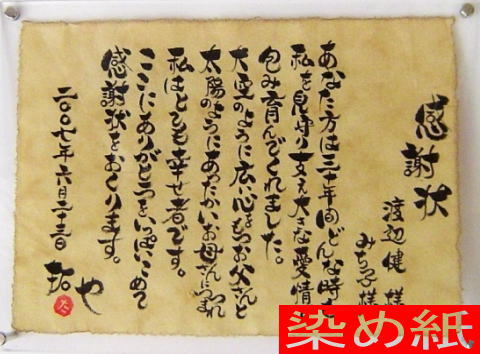 感謝状
渡辺健 様
みち子様
あなた方は三十年間どんな時も
私を見守り支え大きな愛情で
包み育んでくれました。
大空のように広い心をもつお父さんと
太陽のようにあったかいお母さんにつつまれ
私はとても幸せ者です。
ここにありがとうをいっぱいこめて
感謝状をおくります。
二〇〇七年六月二十三日
拓や
た
染め紙